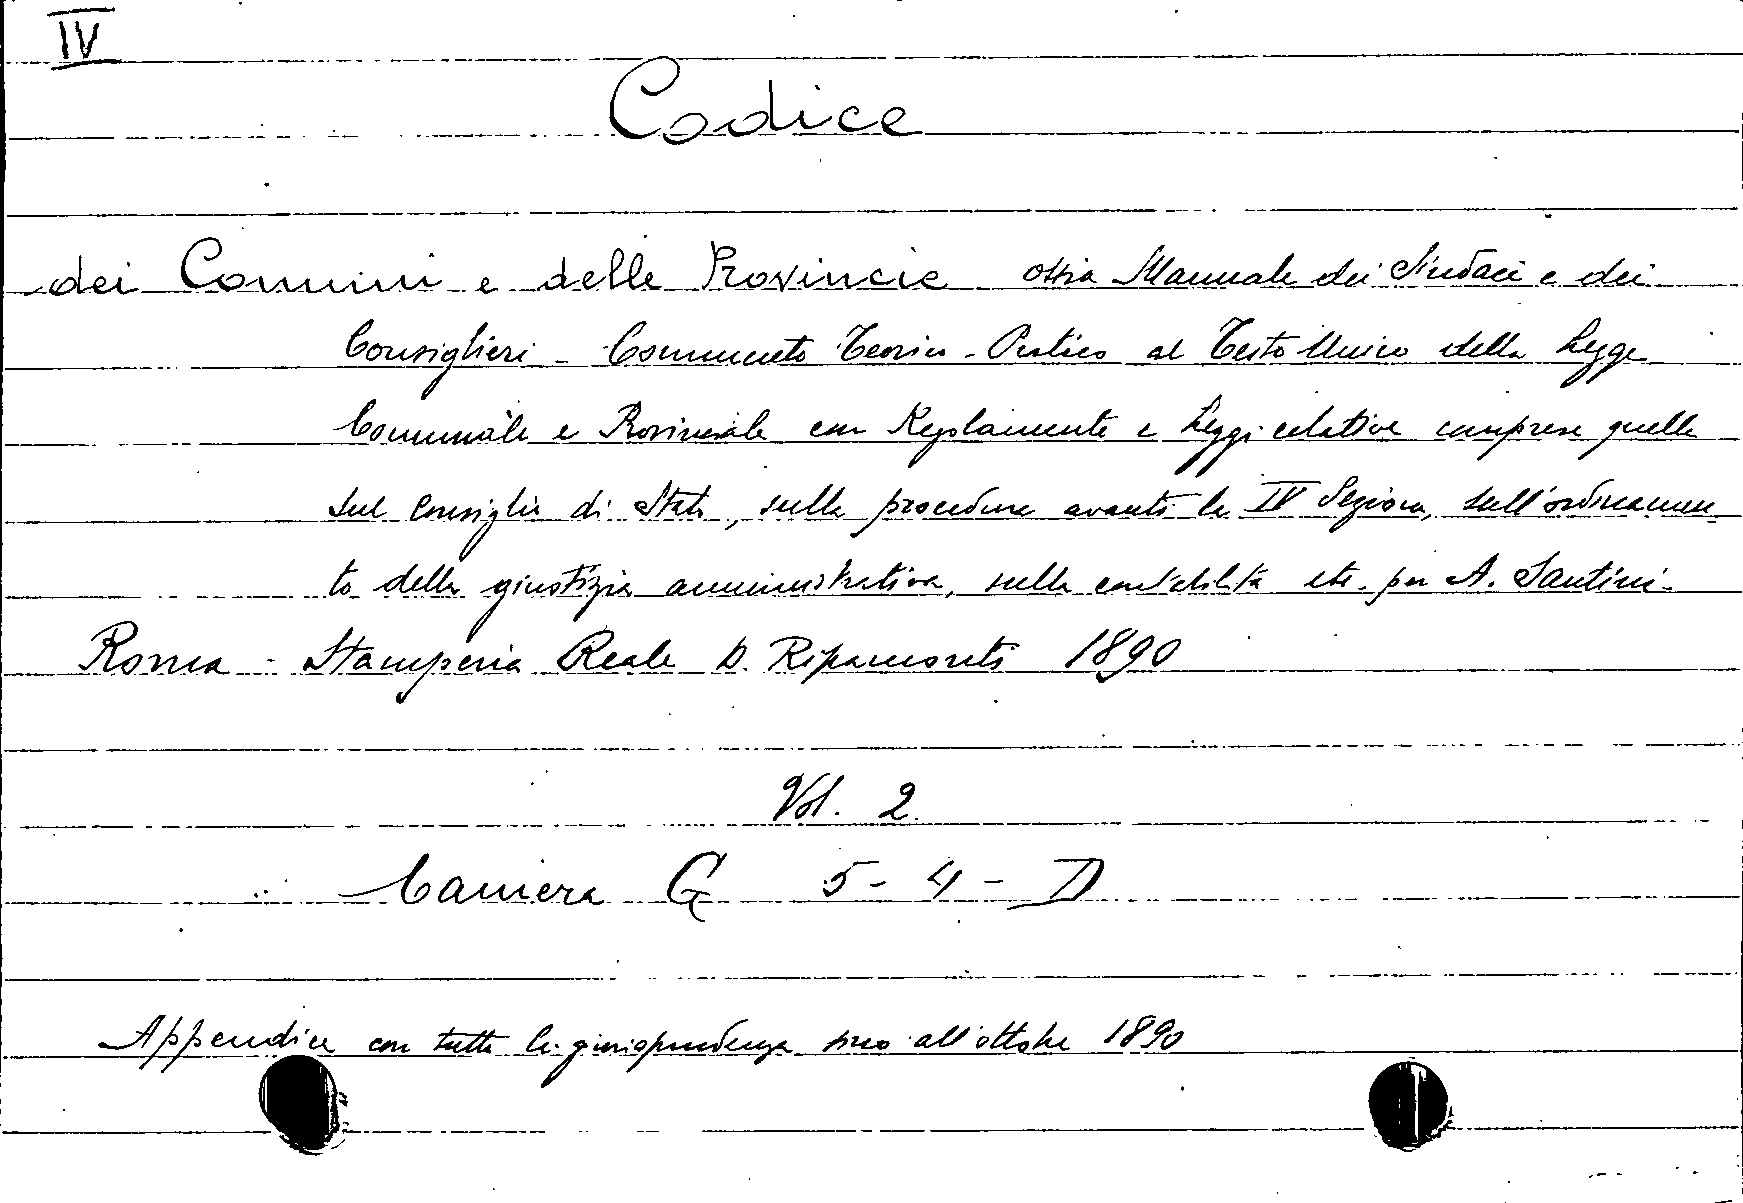 IV
Codice
dei Comuni e delle Provincie ossia Manuale dei Sindaci e dei
Consiglieri - Commento Teorico-Pratico al Testo Unico della Legge
Comunale e Provinciale con Regolamento e Leggi relative comprese quelle
sul Consiglio di Stato, sulla procedura avanti la IV Sezione, sull'ordinamen-
to della giustizia amministrativa, sulla contabilità etc. per A. Santini-
Roma - Stamperia Reale D. Ripamonti 1890
Vol. 2
Camera G 5-4-D
Appendice con tutta la giurisprudenza sino all'ottobre 1890